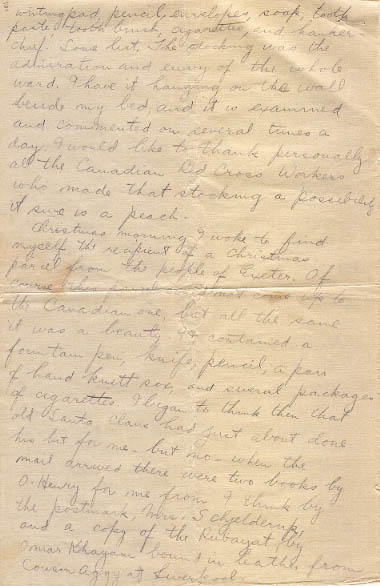 writing pad, pencil, envelopes, soap, tooth
paste, tooth brush, cigarettes, and hanker
chief. Some list. The stocking was the
admiration and envy of the whole
ward. I have it hanging on the wall
beside my bed and it is examined
and commented on several times a
day. I would like to thank personally
all the Canadian Red Cross Workers
who made that stocking a possibility
it sure is a peach.
Christmas morning I woke to find
myself the recipient of a Christmas
parcel from the people of Exeter. Of
course this could not come up to
the Canadian one, but all the same
it was a beauty. It contained a
fountain pen, knife, pencil, a pair
of hand knitt sox, and several packages
of cigarettes. I began to think then that
old Santa Claus had just about done
his bit for me - but no - when the
mail arrived there were two books by
O. Henry for me from I think by
the postmark, Mrs. Schjelderup,
and a copy of the Rubayat by
Omar Khayam bound in leather from
Cousin Aggy at Liverpool.